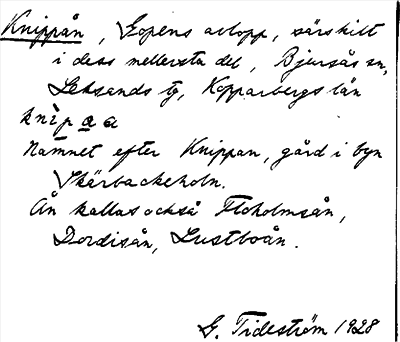 Knippån, Gopens avlopp, särskilt
i dess mellersta del, Bjursås sn,
Leksands tg, Kopparbergs län
knìpa a
Namnet efter Knippan, gård i byn
Skärbackeholn.
Ån kallas också Floholmsån,
Dordisån, Lustboån.
G. Tideström 1928